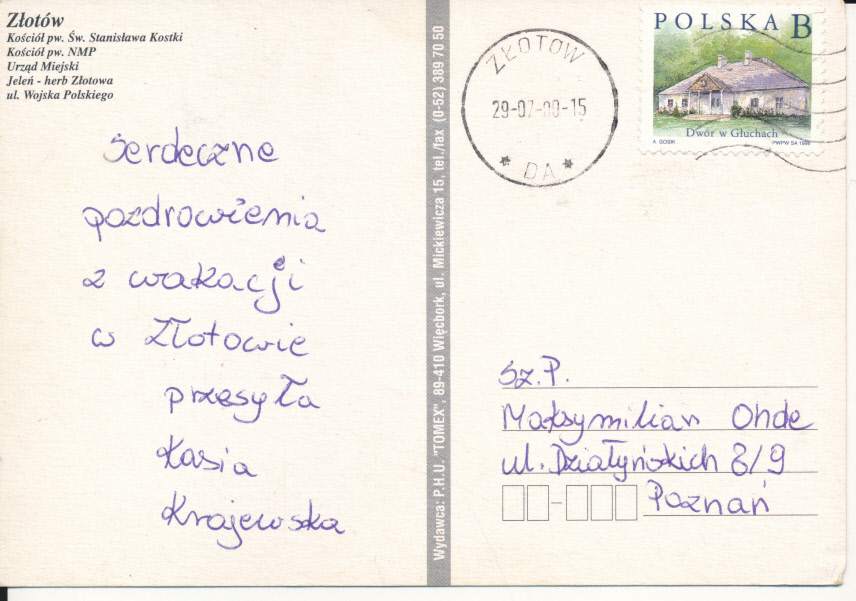 Złotów
Kościół pw. Św. Stanisława Kostki
Kościół pw. NMP
Urząd Miejski
Jeleń - herb Złotowa
ul. Wojska Polskiego
Serdeczne
pozdrowienia
z wakacji
w Złotowie
przesyła
Kasia
Krajewska
Wydawca: P.H.U. "TOMEX", 89-410 Więcbork, ul. Mickiewicza 15, tel./fax (0-52) 389 70 50
ZŁOTÓW
29-07-00-15
* DA *
POLSKA B
Dwór w Głuchach
A. GOSIK PWPW SA 1998
Sz. P.
Maksymilian Ohde
ul. Działyńskich 8/9
Poznań